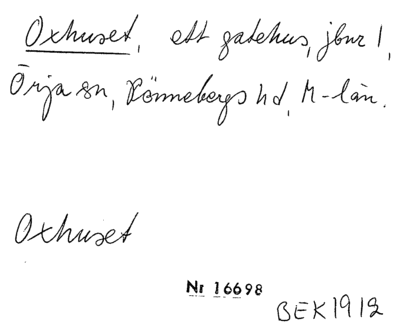 Oxhuset, ett gatehus, jbnr 1,
Örja sn, Rönnebergs hd, M-län.
Oxhuset
Nr 16698
BEK 1912